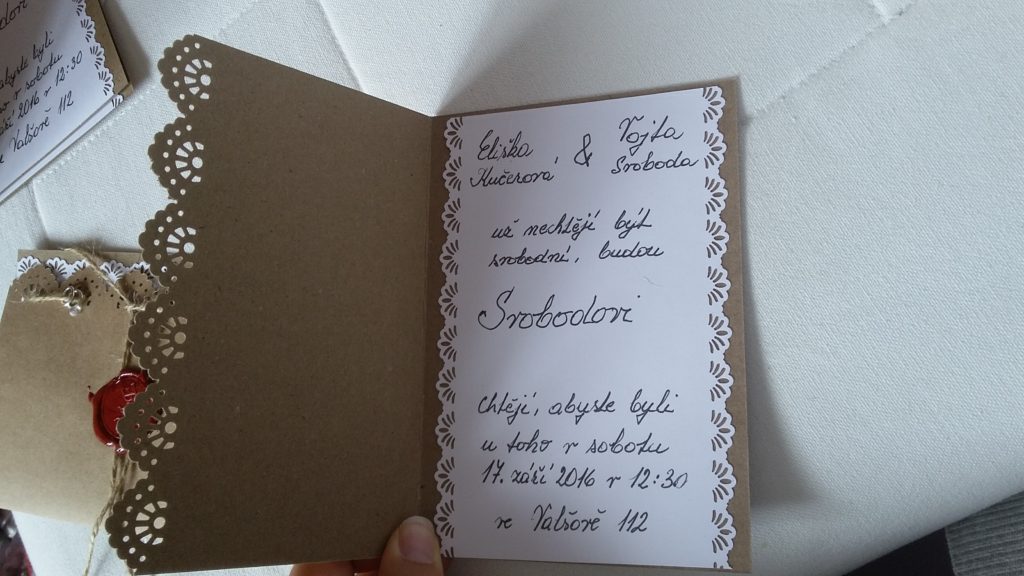 Eliška & Vojta
Kučerová Svoboda
už nechtějí být
svobodní, budou
Svobodovi
Chtějí, abyste byli
u toho v sobotu
17. září 2016 v 12:30
ve Valšově 112
byli
v sobotu
září 2016 v 12:30
Valšově 112